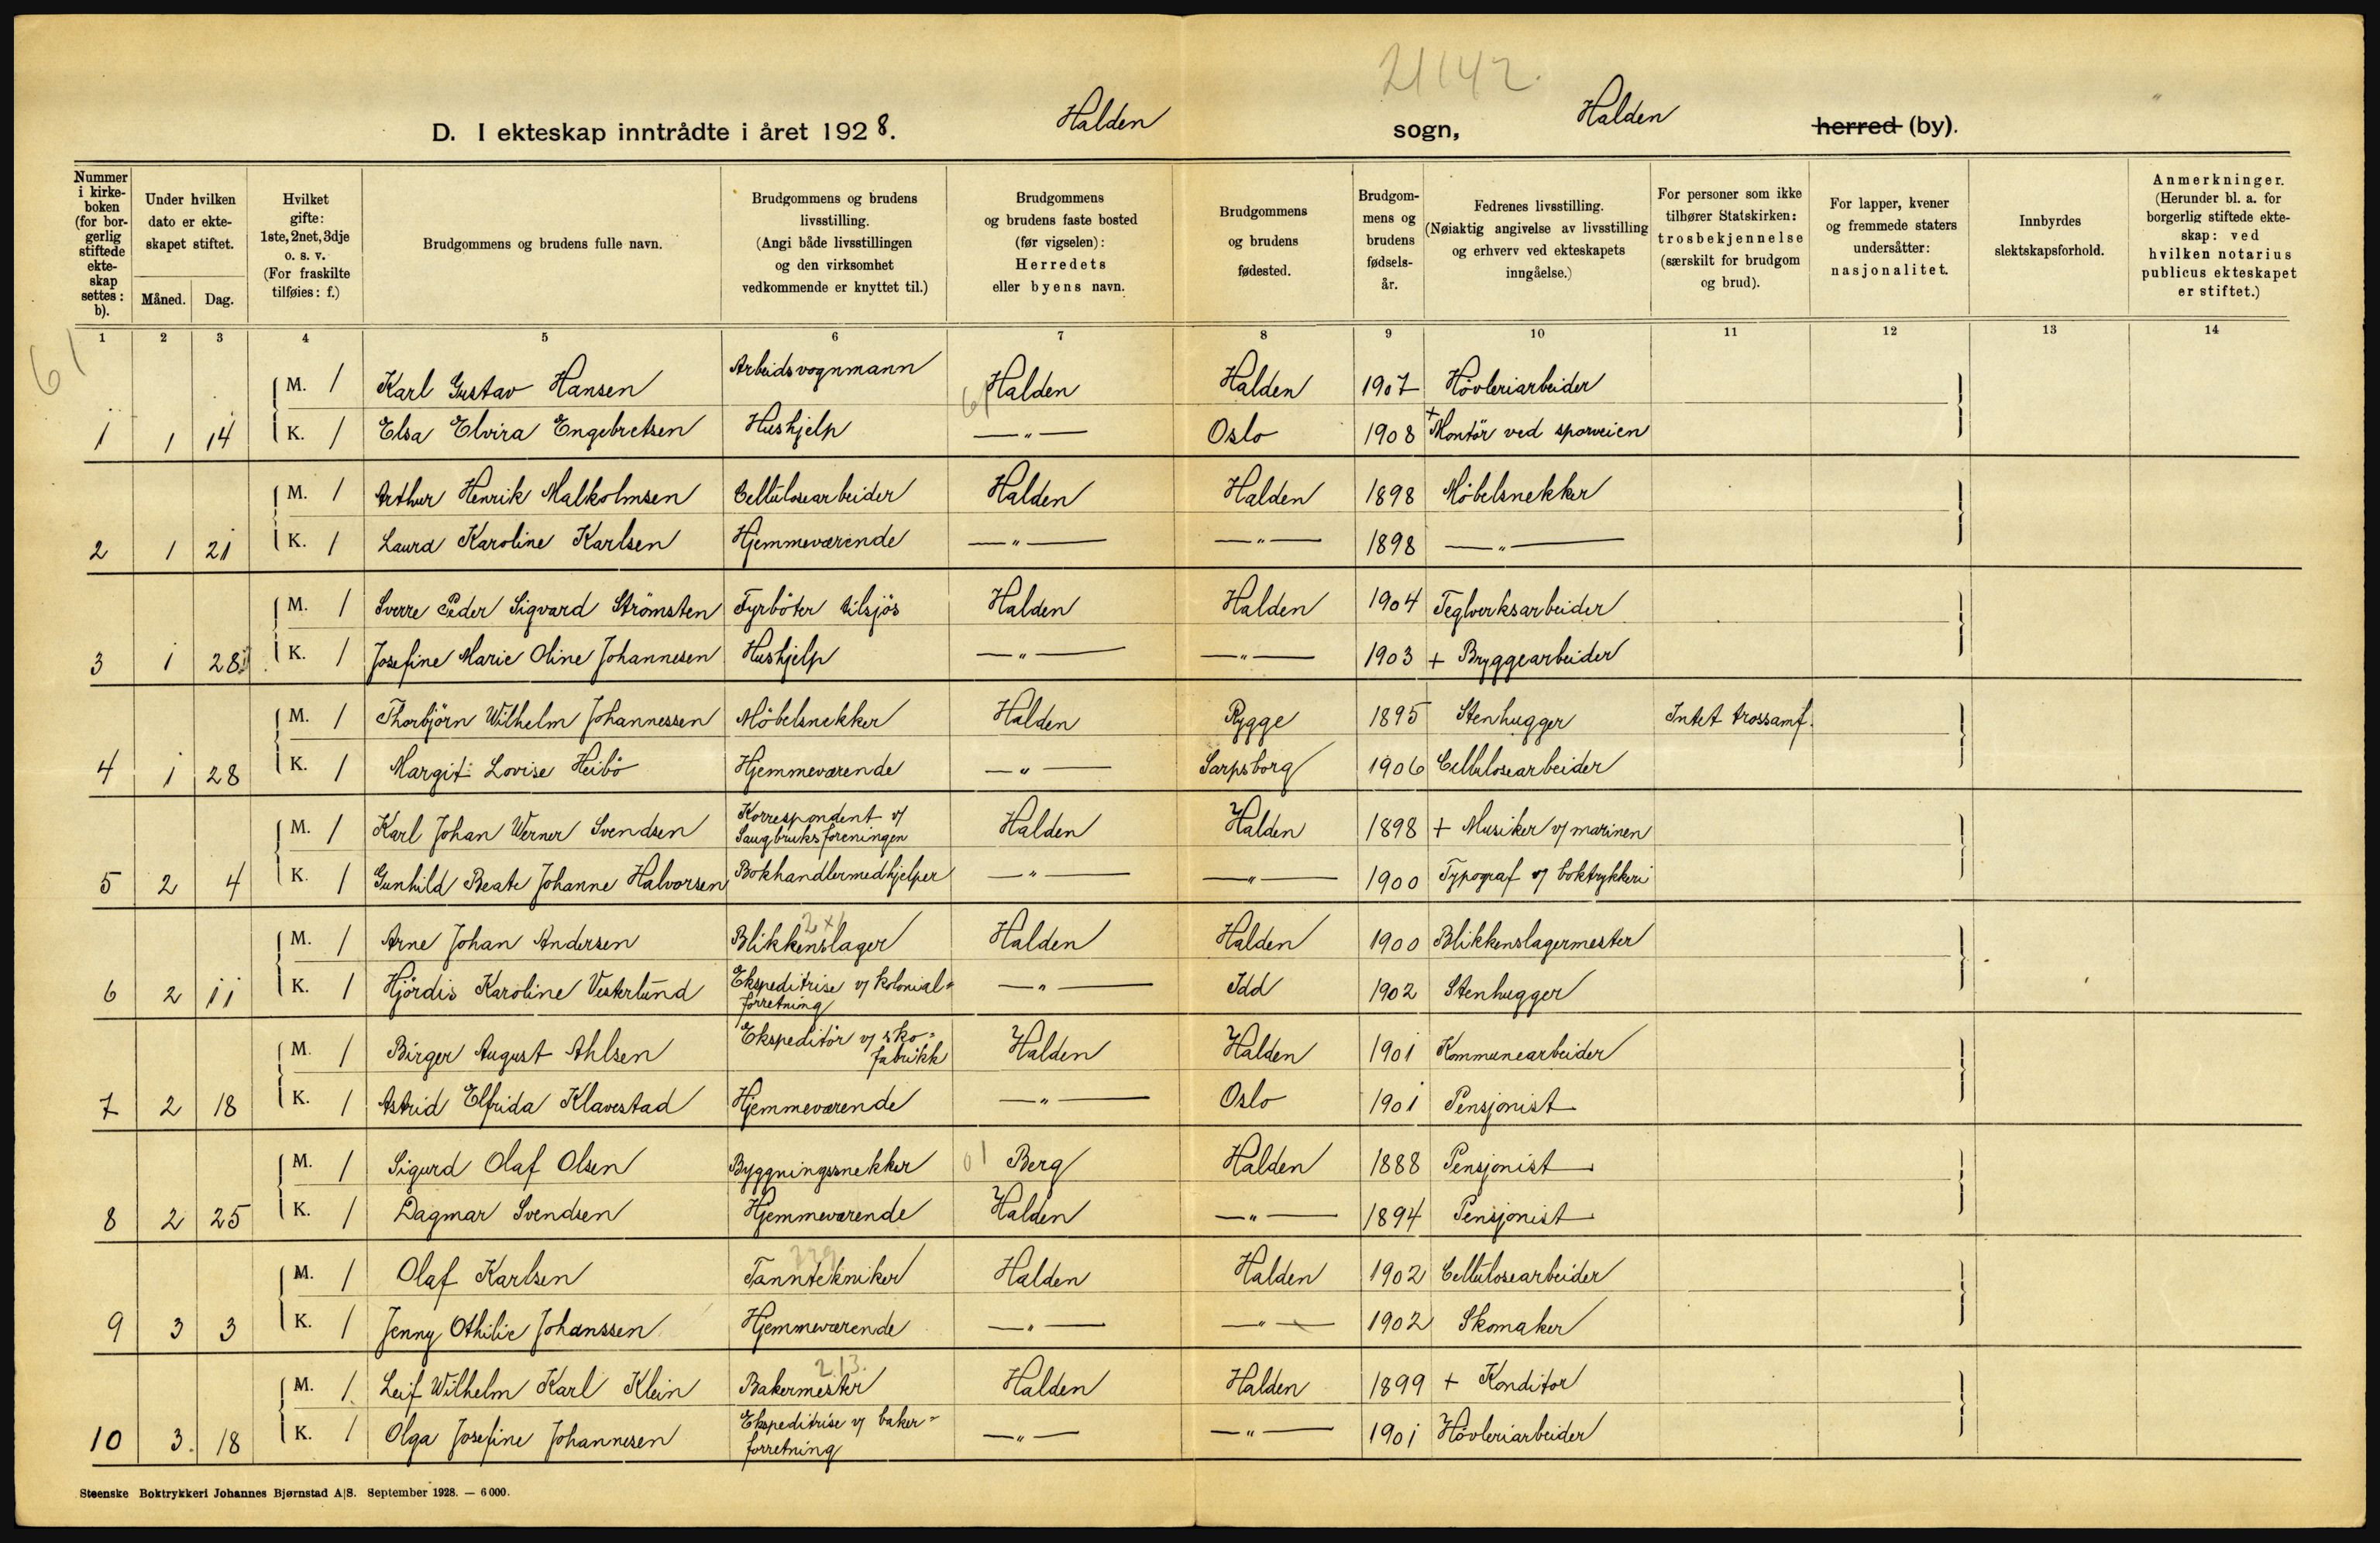 21142.
D. I ekteskap inntrådte i året 1928. Halden sogn, Halden herred (by).
Nummer i kirkeboken (for borgerlig stiftede ekteskap settes: b).
Under hvilken dato er ekteskapet stiftet.
Måned. Dag.
Hvilket gifte: 1ste, 2net, 3dje o. s. v. (For fraskilte tilføies: f.)
Brudgommens og brudens fulle navn.
Brudgommens og brudens livsstilling. (Angi både livsstillingen og den virksomhet vedkommende er knyttet til.)
Brudgommens og brudens faste bosted (før vigselen): Herredets eller byens navn.
Brudgommens og brudens fødested.
Brudgommens og brudens fødselsår.
Fedrenes livsstilling. (Nøiaktig angivelse av livsstilling og erhverv ved ekteskapets inngåelse.)
For personer som ikke tilhører Statskirken: trosbekjennelse (særskilt for brudgom og brud).
For lapper, kvener og fremmede staters undersåtter: nasjonalitet.
Innbyrdes slektskapsforhold.
Anmerkninger. (Herunder bl. a. for borgerlig stiftede ekteskap: ved hvilken notarius publicus ekteskapet er stiftet.)
1 2 3 4 5 6 7 8 9 10 11 12 13 14
61
M. 1 Karl Gustav Hansen Arbeidsvognmann 61 Halden Halden 1907 Høvleriarbeider
1 1 14 K. 1 Elsa Elvira Engebretsen Hushjelp —"— Oslo 1908 + Montør ved sporveien
M. 1 Arthur Henrik Malkolmsen Cellulosearbeider Halden Halden 1898 Møbelsnekker
2 1 21 K. 1 Laura Karoline Karlsen Hjemmeværende —"— —"— 1898 —"—
M. 1 Sverre Peder Sigvard Strömsten Fyrböter tilsjös Halden Halden 1904 Teglverksarbeider
3 1 28 K. 1 Josefine Marie Oline Johannesen Hushjelp —"— —"— 1903 + Bryggearbeider
M. 1 Thorbjörn Wilhelm Johannessen Møbelsnekker Halden Rygge 1895 Stenhugger Intet trossamf.
4 1 28 K. 1 Margit Lovise Heibö Hjemmeværende —"— Sarpsborg 1906 Cellulosearbeider
M. 1 Karl Johan Werner Svendsen Korrespondent v/ Saugbruksforeningen Halden Halden 1898 + Musiker v/ marinen
5 2 4 K. 1 Gunhild Beate Johanne Halvorsen Bokhandlermedhjelper —"— —"— 1900 Typograf v/ boktrykkeri
M. 1 Arne Johan Andersen Blikkenslager Halden Halden 1900 Blikkenslagermester
6 2 11 K. 1 Hjördis Karoline Vesterlund Ekspeditrise v/ kolonial= forretning —"— Idd 1902 Stenhugger
M. 1 Birger August Ahlsen Ekspeditör v/ sko= fabrikk Halden Halden 1901 Kommunearbeider
7 2 18 K. 1 Astrid Elfrida Klavestad Hjemmeværende —"— Oslo 1901 Pensjonist
M. 1 Sigurd Olaf Olsen Byggningssnekker 01 Berg Halden 1888 Pensjonist
8 2 25 K. 1 Dagmar Svendsen Hjemmeværende Halden —"— 1894 Pensjonist
M. 1 Olaf Karlsen Tanntekniker Halden Halden 1902 Cellulosearbeider
9 3 3 K. 1 Jenny Othilie Johanssen Hjemmeværende —"— —"— 1902 Skomaker
M. 1 Leif Wilhelm Karl Klein 213. Bakermester Halden Halden 1899 + Konditor
10 3. 18 K. 1 Olga Josefine Johannesen Ekspeditrise v/ baker= forretning —"— —"— 1901 Høvleriarbeider
Steenske Boktrykkeri Johannes Bjørnstad A|S. September 1928. — 6000.